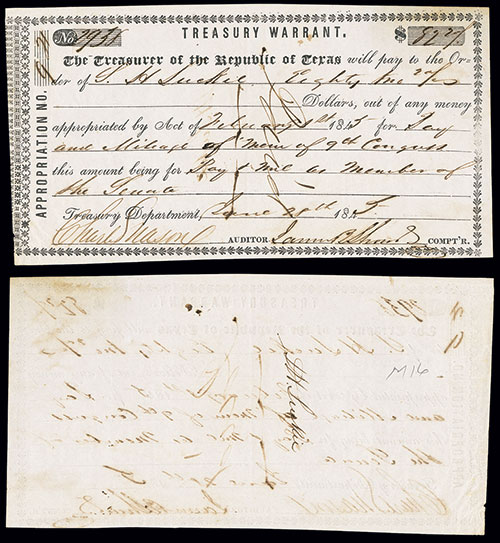 TREASURY WARRANT.
No. 2955 $
The Treasurer of the Republic of Texas will pay to the Or-
der of S. H. Luckie Eighty
Dollars, out of any money
appropriated by Act of February 1845 for Pay
and Mileage of Mem of 9th Congress
this amount being for Pay & Mil as Member of
the Senate
Treasury Department, June 20th 1845.
Charles Mason AUDITOR. James B Shaw COMPT'R.
APPROPRIATION NO.
S H Luckie
M16